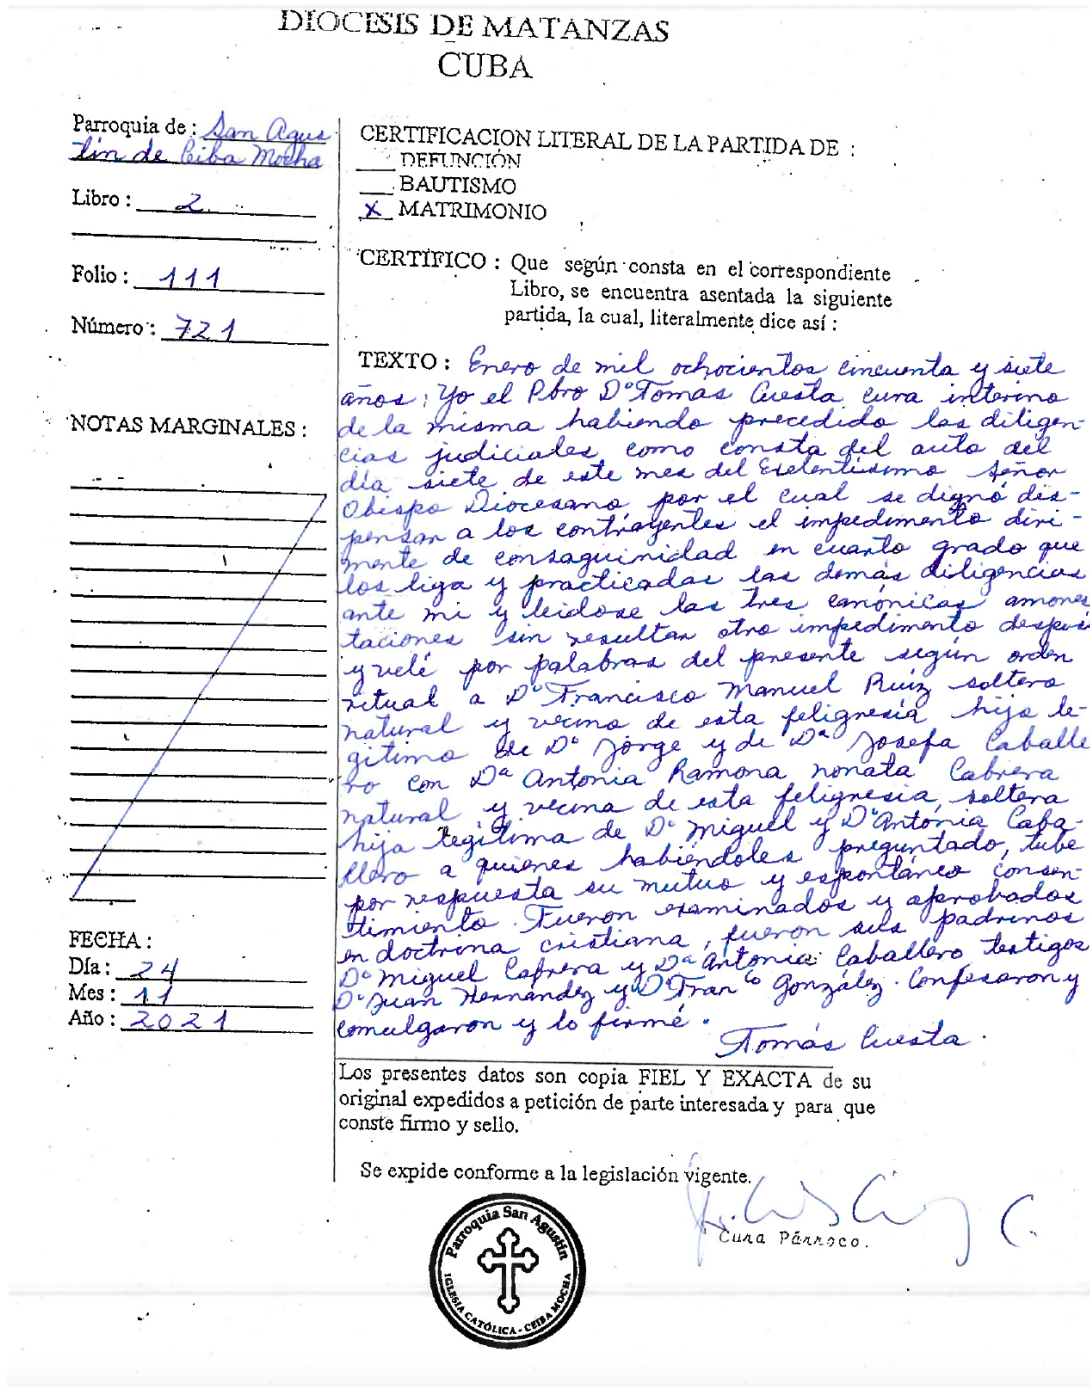 DIOCESIS DE MATANZAS
CUBA
Parroquia de : San Agus
tin de Ceiba Mocha
Libro : 2
Folio : 111
Número : 721
NOTAS MARGINALES :
FECHA :
Día : 24
Mes : 11
Año : 2021
CERTIFICACION LITERAL DE LA PARTIDA DE :
DEFUNCIÓN
BAUTISMO
X MATRIMONIO
CERTIFICO : Que según consta en el correspondiente
Libro, se encuentra asentada la siguiente
partida, la cual, literalmente dice así :
TEXTO : Enero de mil ochocientos cincuenta y siete
años: Yo el Pbro Dº Tomas Cuesta cura interino
de la misma habiendo precedido las diligen-
cias judiciales como consta del auto del
día siete de este mes del Exelentisimo Señor
Obispo Diocesano por el cual se dignó dis-
pensar a los contrayentes el impedimento diri-
mente de consaguinidad en cuarto grado que
los liga y practicadas las demás diligencias
ante mi y leidose las tres canónicas amones
taciones sin resultar otro impedimento desposé
y velé por palabras del presente según orden
ritual a Dº Francisco Manuel Ruiz soltero
natural y vecino de esta feligresía hijo le-
gitimo de Dº Jorge y de Dª Josefa Caballe
ro con Dª Antonia Ramona nonata Cabrera
natural y vecina de esta feligresia, soltera
hija legítima de Dº Miguel y Dª Antonia Caba-
llero a quienes habiéndoles preguntado, tube
por respuesta su mutuo y espontáneo consen-
timiento. Fueron examinados y aprobados
en doctrina cristiana, fueron sus padrinos
Dº Miguel Cabrera y Dª Antonia Caballero testigos
Dº Juan Hernández y Dº Franco González. Confesaron y
comulgaron y lo firmé.
Tomás Cuesta.
Los presentes datos son copia FIEL Y EXACTA de su
original expedidos a petición de parte interesada y para que
conste firmo y sello.
Se expide conforme a la legislación vigente.
Cura Párroco.
Parroquia San Agustín
IGLESIA CATÓLICA - CEIBA MOCHA